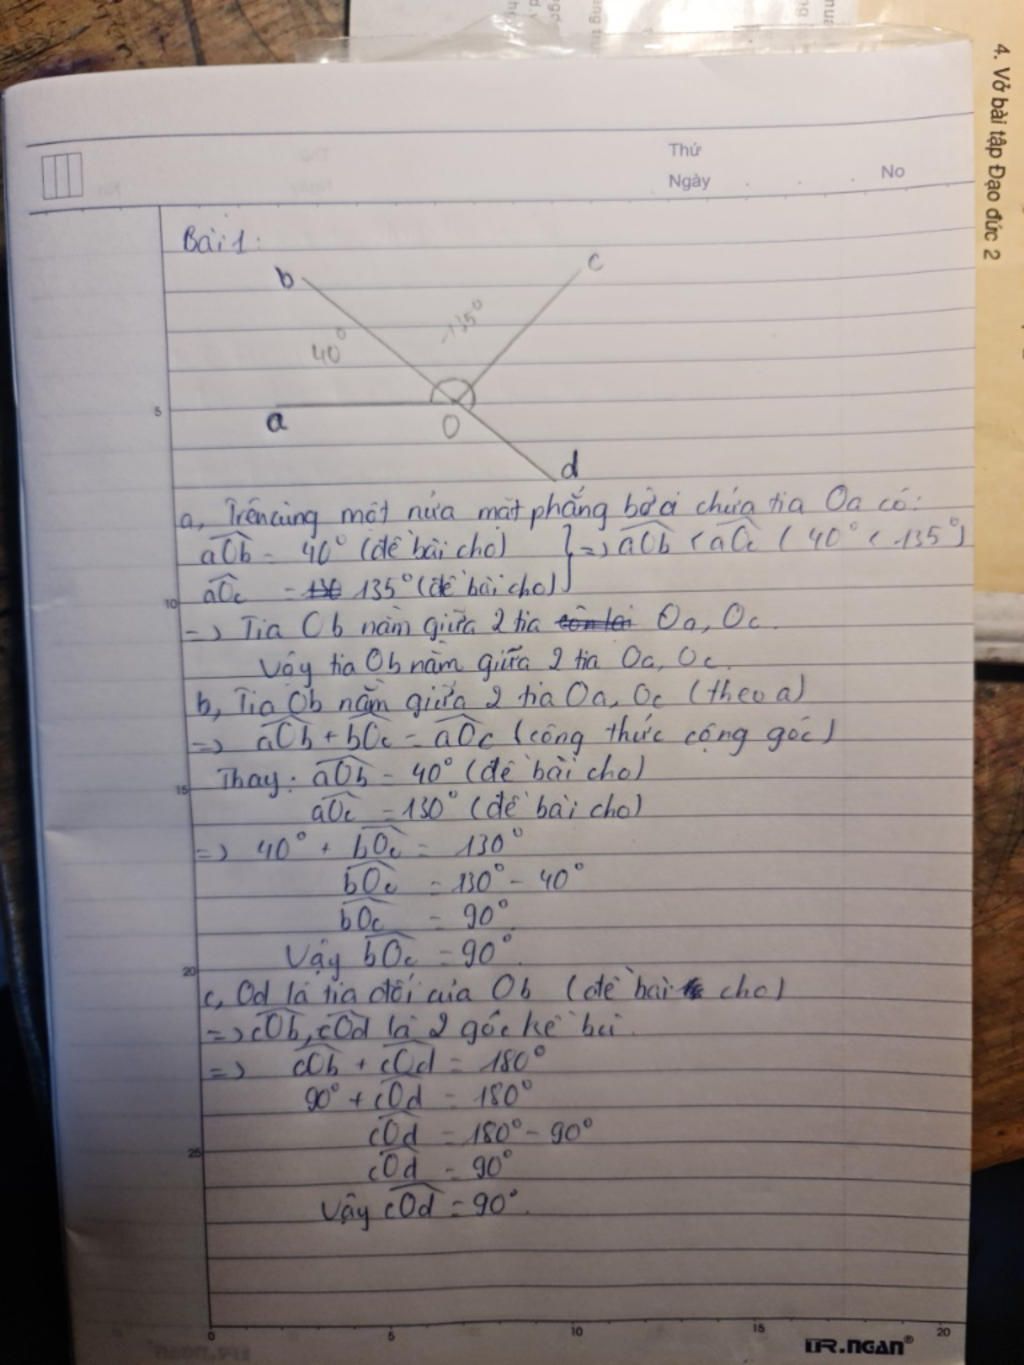 4. Vở bài tập Đạo đức 2
Thứ
Ngày
No
Bài 1:
b
c
40°
135°
a
O
d
a, Trên cùng một nửa mặt phẳng bờ chứa tia Oa có:
aOb = 40° (đề bài cho) } => aOb < aOc ( 40° < 135°)
aOc = 135° (đề bài cho)
=> Tia Ob nằm giữa 2 tia Oa, Oc.
Vậy tia Ob nằm giữa 2 tia Oa, Oc.
b, Tia Ob nằm giữa 2 tia Oa, Oc (theo a)
=> aOb + bOc = aOc (công thức cộng góc)
Thay: aOb = 40° (đề bài cho)
aOc = 130° (đề bài cho)
=> 40° + bOc = 130°
bOc = 130° - 40°
bOc = 90°
Vậy bOc = 90°.
c, Od là tia đối của Ob (đề bài cho)
=> cOb, cOd là 2 góc kề bù.
=> cOb + cOd = 180°
90° + cOd = 180°
cOd = 180° - 90°
cOd = 90°
Vậy cOd = 90°.
5
10
15
20
25
0
5
10
15
20
TR.NGAN®